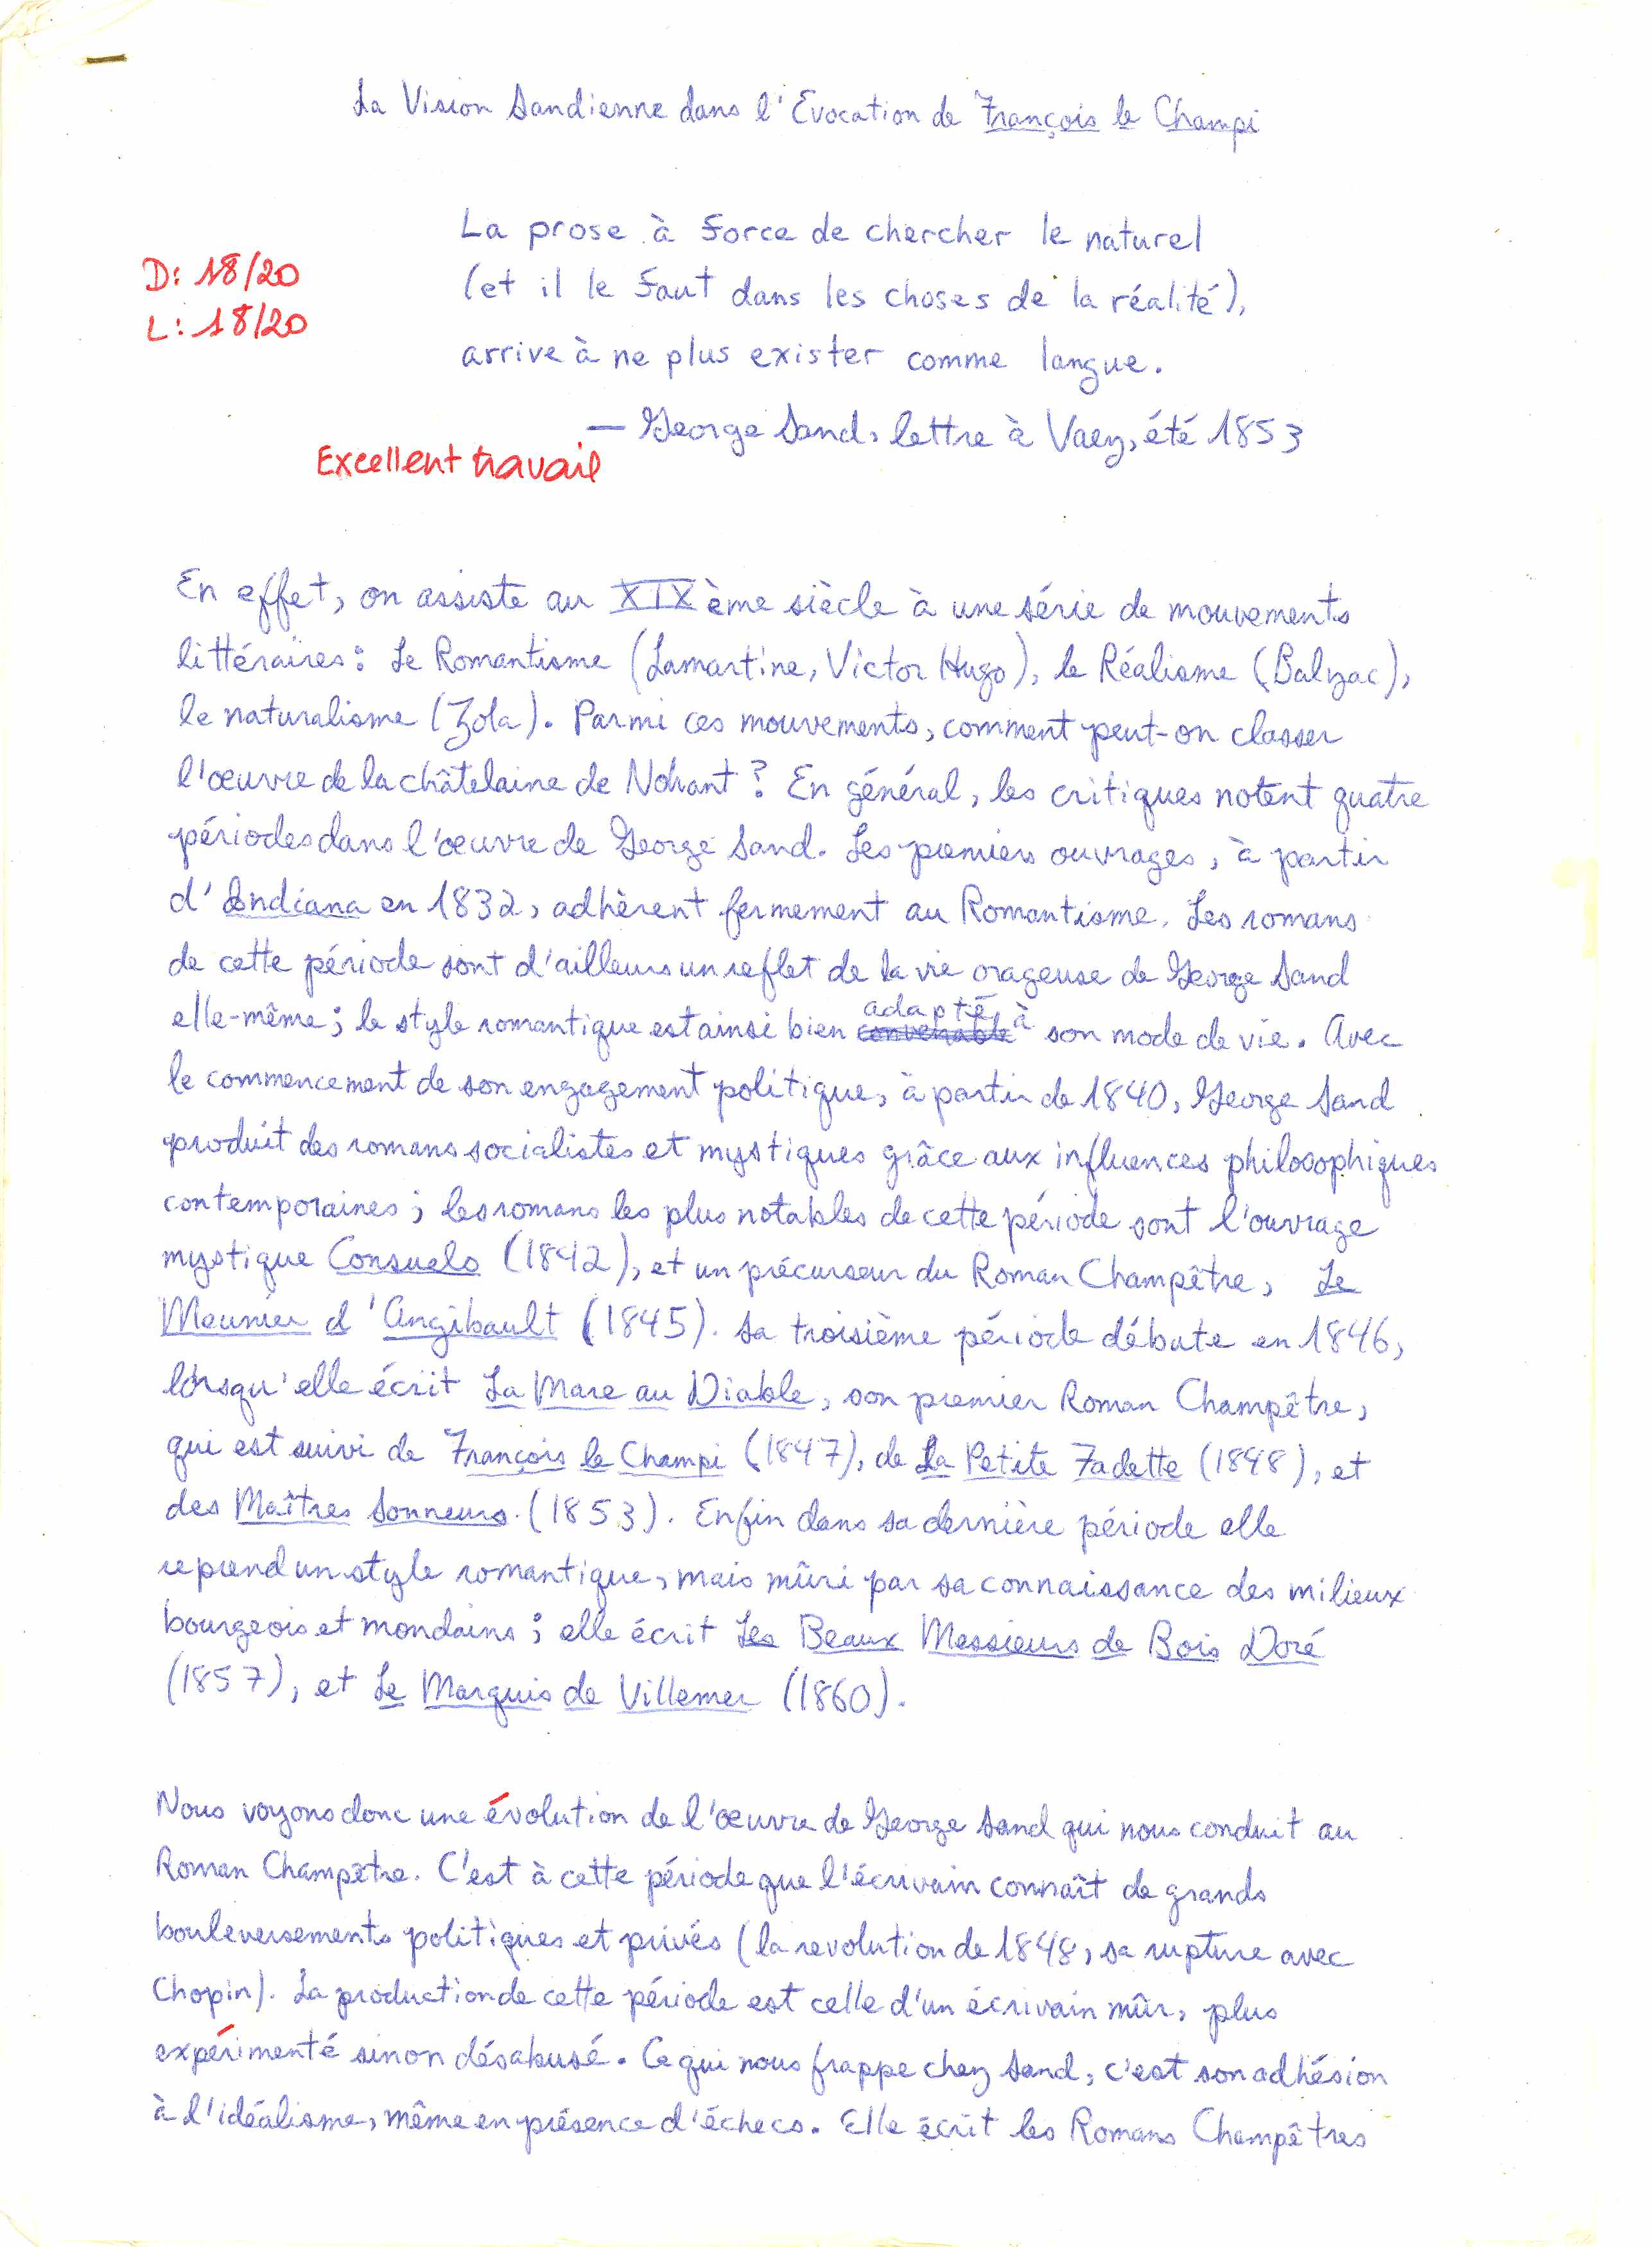 La Vision Sandienne dans l'Evocation de François le Champi
La prose à force de chercher le naturel
(et il le faut dans les choses de la réalité),
arrive à ne plus exister comme langue.
— George Sand, lettre à Vaez, été 1853
D: 18/20
L: 18/20
Excellent travail
En effet, on assiste au XIXème siècle à une série de mouvements
littéraires: Le Romantisme (Lamartine, Victor Hugo), le Réalisme (Balzac),
le naturalisme (Zola). Parmi ces mouvements, comment peut-on classer
l'œuvre de la châtelaine de Nohant? En général, les critiques notent quatre
périodes dans l'œuvre de George Sand. Les premiers ouvrages, à partir
d'Indiana en 1832, adhèrent fermement au Romantisme. Les romans
de cette période sont d'ailleurs un reflet de la vie orageuse de George Sand
elle-même; le style romantique est ainsi bien convenable adapté à son mode de vie. Avec
le commencement de son engagement politique, à partir de 1840, George Sand
produit des romans socialistes et mystiques grâce aux influences philosophiques
contemporaines; les romans les plus notables de cette période sont l'ouvrage
mystique Consuelo (1842), et un précurseur du Roman Champêtre, Le
Meunier d'Angibault (1845). Sa troisième période débute en 1846,
lorsqu'elle écrit La Mare au Diable, son premier Roman Champêtre,
qui est suivi de François le Champi (1847), de La Petite Fadette (1848), et
des Maîtres Sonneurs (1853). Enfin dans sa dernière période elle
reprend un style romantique, mais mûri par sa connaissance des milieux
bourgeois et mondains; elle écrit Les Beaux Messieurs de Bois Doré
(1857), et Le Marquis de Villemer (1860).
Nous voyons donc une évolution de l'œuvre de George Sand qui nous conduit au
Roman Champêtre. C'est à cette période que l'écrivain connaît de grands
bouleversements politiques et privés (la revolution de 1848, sa rupture avec
Chopin). La production de cette période est celle d'un écrivain mûr, plus
expérimenté sinon désabusé. Ce qui nous frappe chez Sand, c'est son adhésion
à l'idéalisme, même en présence d'échecs. Elle écrit les Romans Champêtres